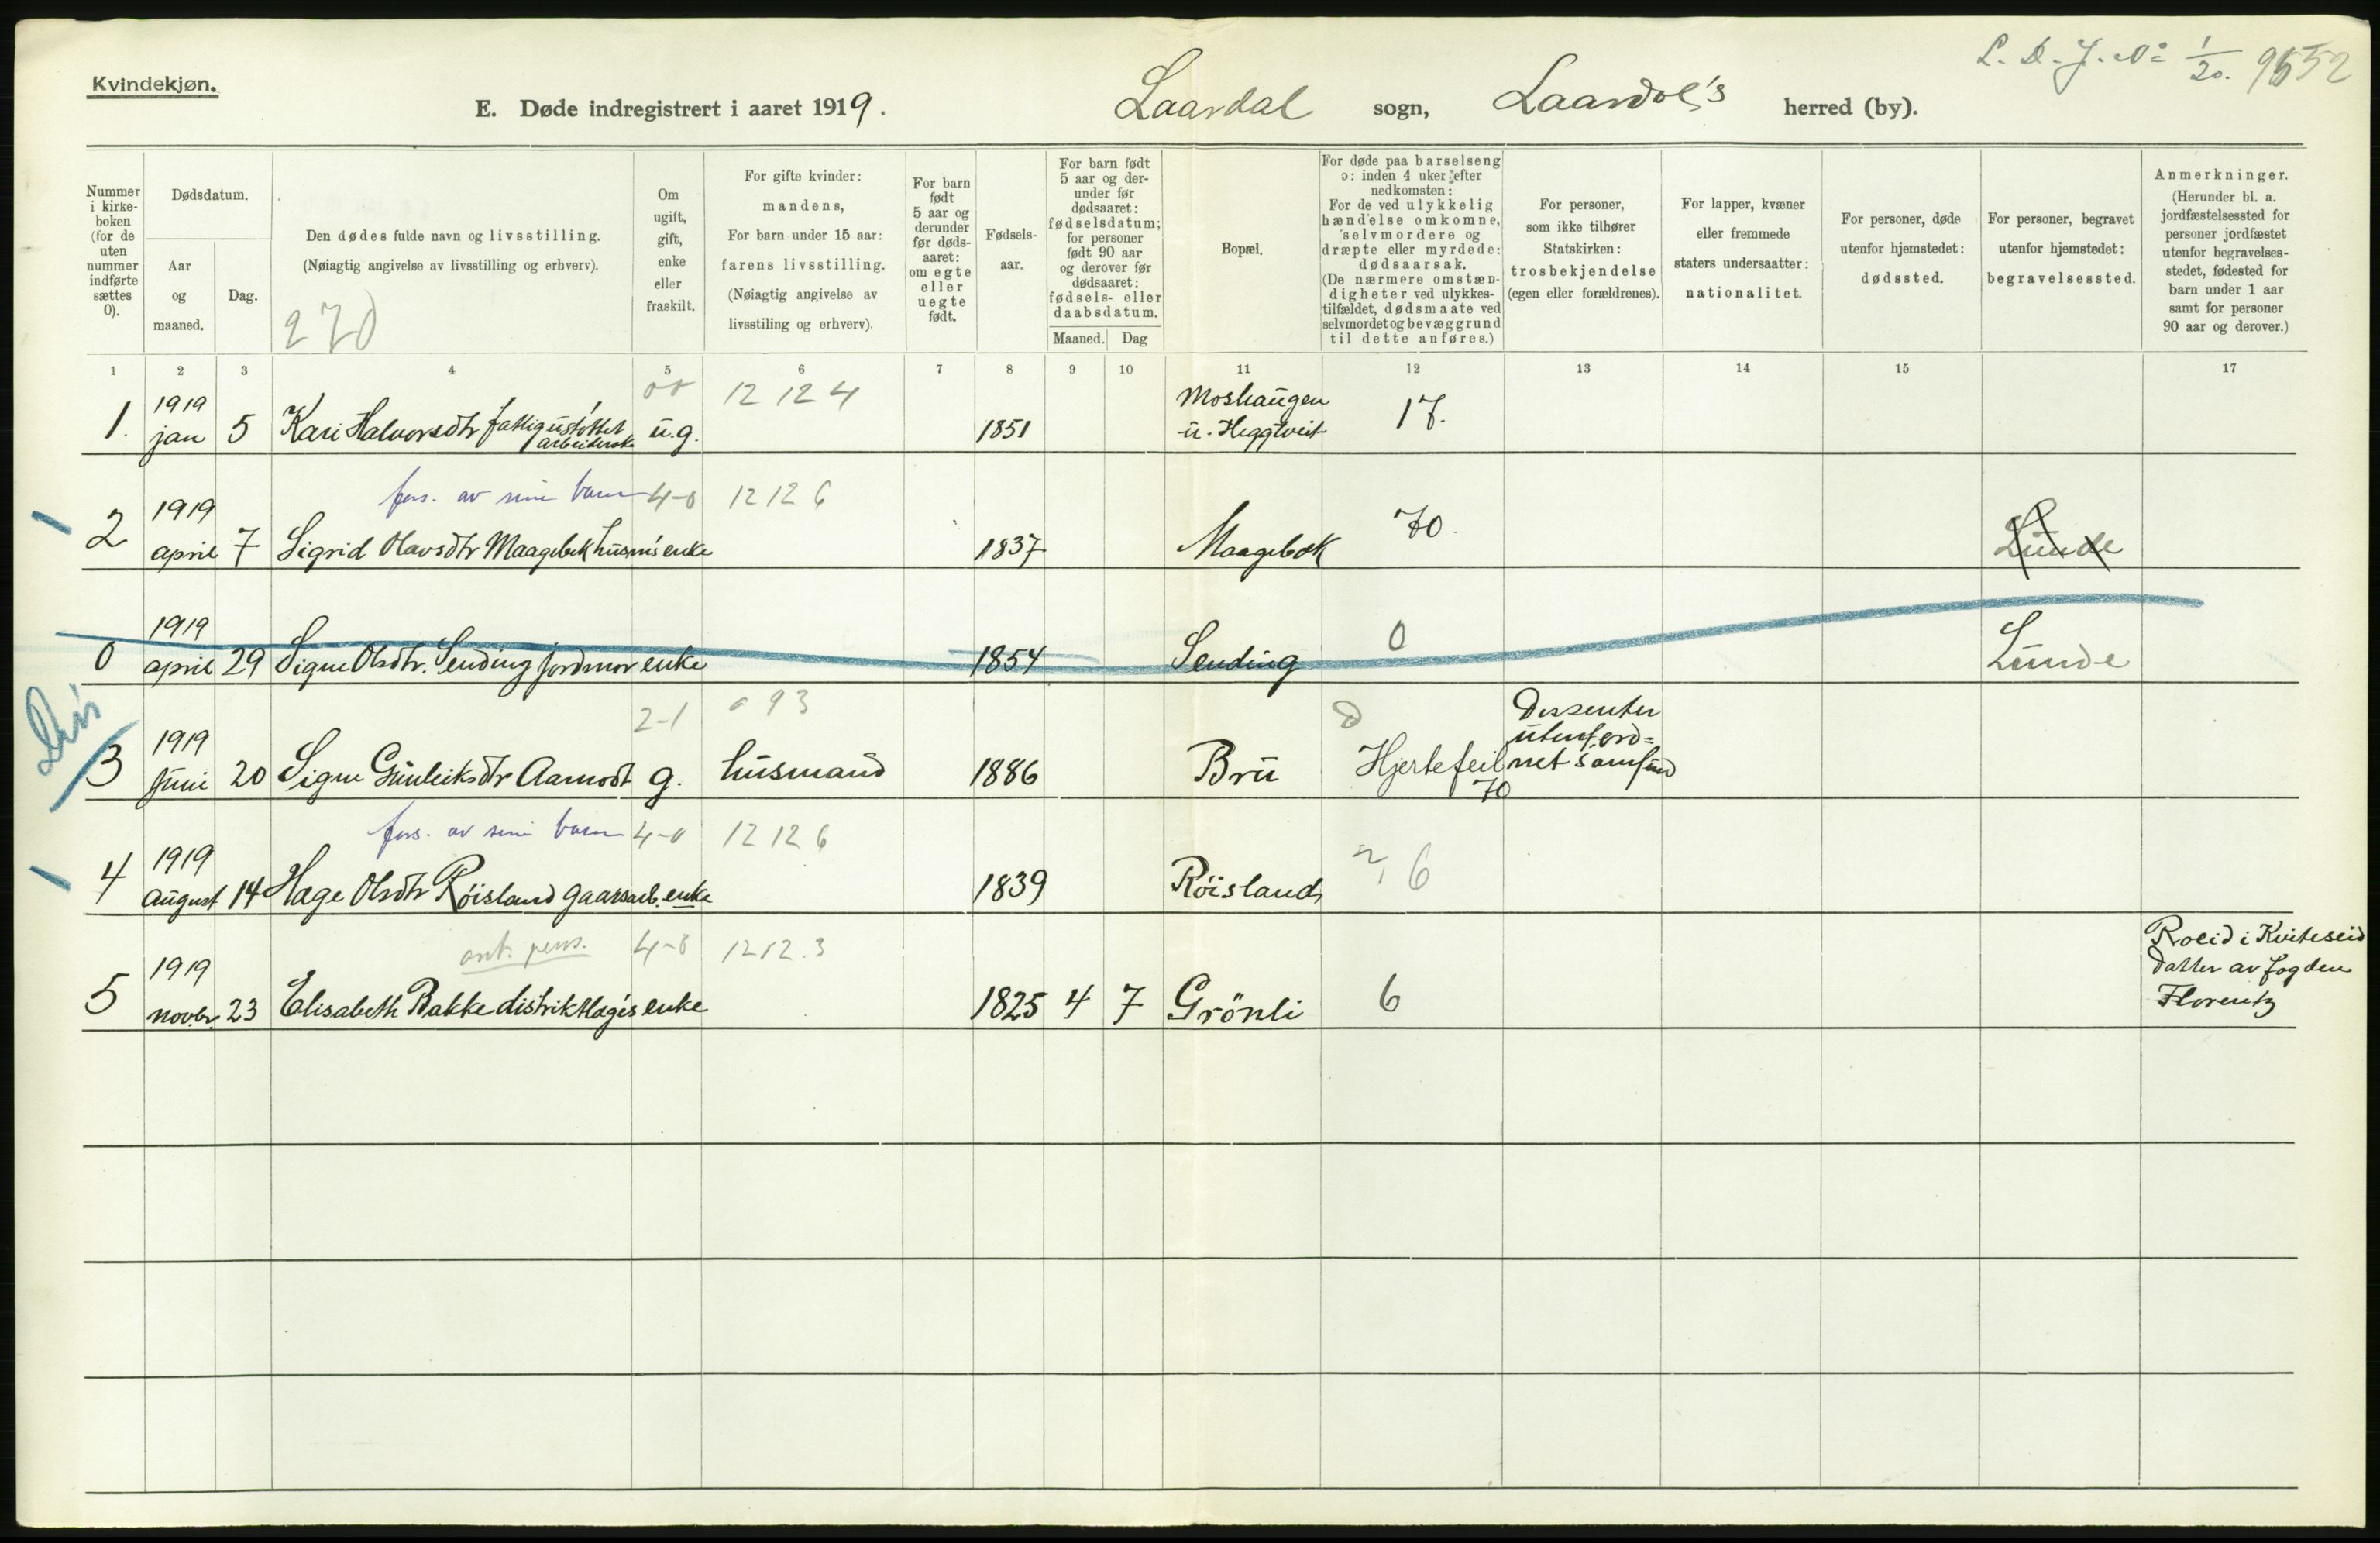 Kvindekjøn.
L. D. J. No 1/20. 9552
E. Døde indregistrert i aaret 1919. Laardal sogn, Laardal's herred (by).
Nummer i kirkeboken (for de uten nummer indførte sættes 0).
Dødsdatum.
Aar og maaned.
Dag.
Den dødes fulde navn og livsstilling.
(Nøiagtig angivelse av livsstilling og erhverv).
270
Om ugift, gift, enke eller fraskilt.
For gifte kvinder: mandens,
For barn under 15 aar: farens livsstilling.
(Nøiagtig angivelse av livsstiling og erhverv).
For barn født 5 aar og derunder før dødsaaret: om egte eller uegte født.
Fødselsaar.
For barn født 5 aar og derunder før dødsaaret: fødselsdatum; for personer født 90 aar og derover før dødsaaret: fødsels- eller daabsdatum.
Maaned. Dag
Bopæl.
For døde paa barselseng ɔ: inden 4 uker efter nedkomsten:
For de ved ulykkelig hændelse omkomne, selvmordere og dræpte eller myrdede: dødsaarsak.
(De nærmere omstændigheter ved ulykkestilfældet, dødsmaate ved selvmordet og bevæggrund til dette anføres.)
For personer, som ikke tilhører Statskirken: trosbekjendelse (egen eller forældrenes).
For lapper, kvæner eller fremmede staters undersaatter: nationalitet.
For personer, døde utenfor hjemstedet: dødssted.
For personer, begravet utenfor hjemstedet: begravelsessted.
Anmerkninger.
(Herunder bl. a. jordfæstelsessted for personer jordfæstet utenfor begravelsesstedet, fødested for barn under 1 aar samt for personer 90 aar og derover.)
1 2 3 4 5 6 7 8 9 10 11 12 13 14 15 17
1. 1919 jan 5 Kari Halvorsdtr fattigustøttet arbeiderske u.g. 12 12 4 1851 Moshaugen u. Heggtveit 17.
fors. av sine barn 4-0 12 12 6
2 1919 april 7 Sigrid Olavsdtr Maagebok husm's enke 1837 Maagebok 70. Lunde
0 1919 april 29 Signe Olsdtr. Sending jordmor enke 1854 Sending 0 Lunde
Dis
2-1 093
3 1919 Juni 20 Signe Gunleiksdtr Aamodt g. husmand 1886 Bru Hjertefeil 70 Dissenter utenfor ord=net samfund
fors. av sine barn 4-0 12 12 6
4 1919 August 14 Hage Olsdtr Røisland gaardarb. enke 1839 Røisland 6
4-0 12 12.3
5 1919 novbr. 23 Elisabeth Bakke distriktlæges enke 1825 4 7 Grönli 6
Roeid i Kviteseid
Datter av fogden
Florentz